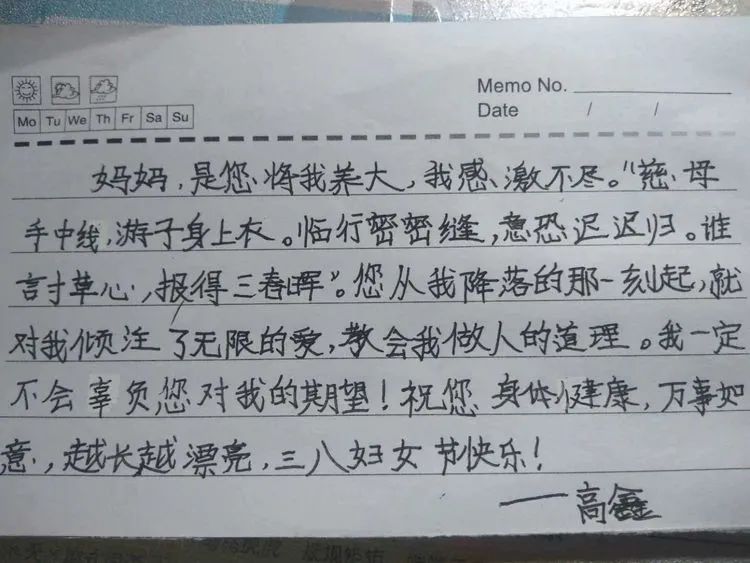 Memo No.
Date / /
Mo Tu We Th Fr Sa Su
妈妈，是您将我养大，我感激不尽。“慈母
手中线，游子身上衣。临行密密缝，意恐迟迟归。谁
言寸草心，报得三春晖”。您从我降落的那一刻起，就
对我倾注了无限的爱，教会我做人的道理。我一定
不会辜负您对我的期望！祝您身体健康，万事如
意，越长越漂亮，三八妇女节快乐！
——高鑫